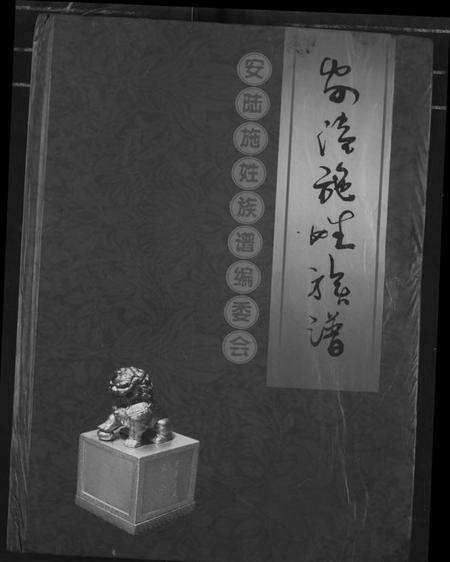 安陆施姓族谱
安陆施姓族谱编委会